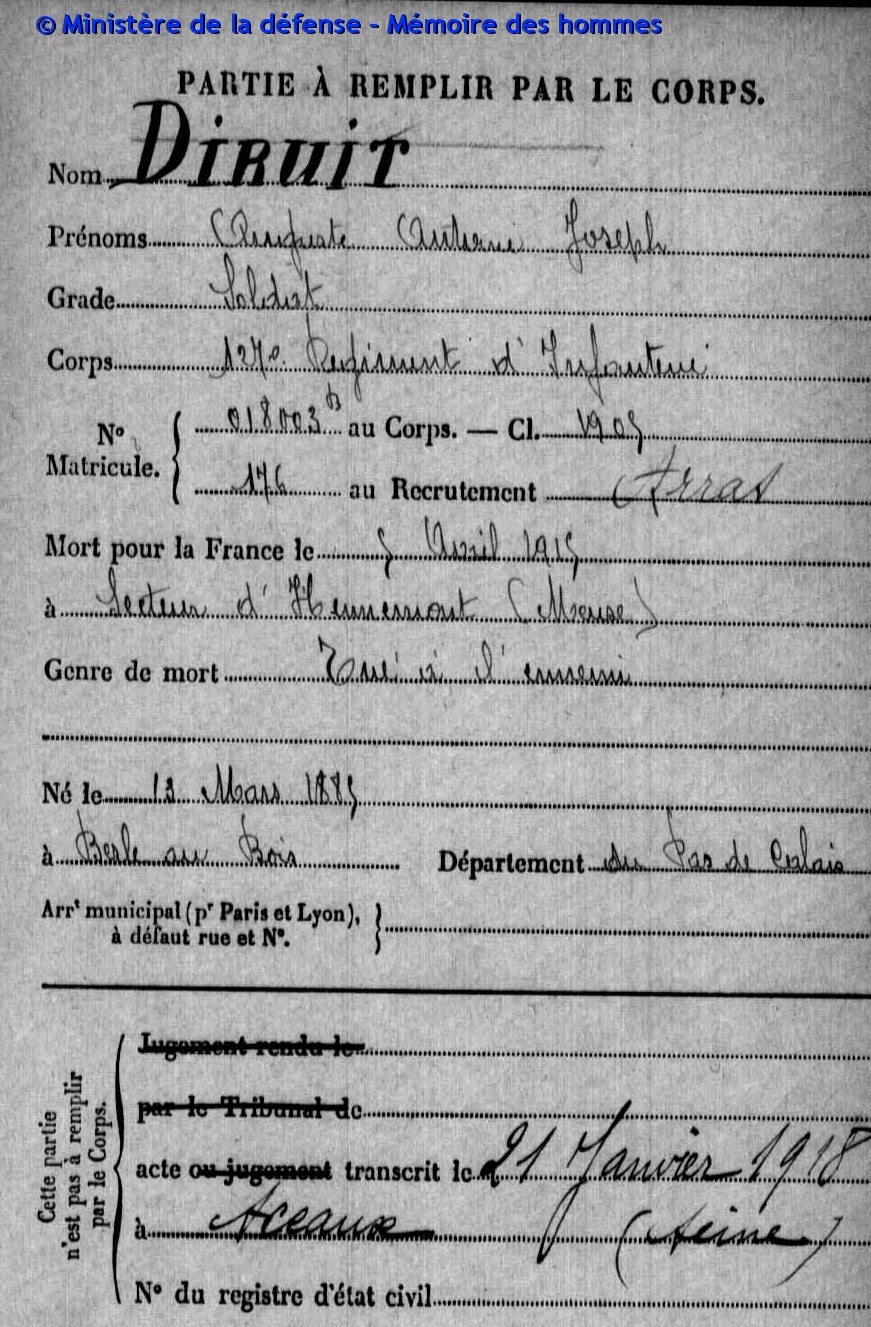 © Ministère de la défense - Mémoire des hommes
PARTIE À REMPLIR PAR LE CORPS.
Nom DIRUIT
Prénoms Auguste Antoine Joseph
Grade Soldat
Corps 127e Régiment d'Infanterie
N° Matricule. 018003 au Corps. — Cl. 1905
176 au Recrutement Arras
Mort pour la France le 5 Avril 1915
à Secteur d'Hennemont (Meuse)
Genre de mort Tué à l'ennemi
Né le 13 Mars 1885
à Besle au Bois Département du Pas de Calais
Arrt municipal (pr Paris et Lyon),
à défaut rue et N°.
Cette partie
n'est pas à remplir
par le Corps.
Jugement rendu le
par le Tribunal de
acte ou jugement transcrit le 21 Janvier 1918
à Sceaux (Seine)
N° du registre d'état civil